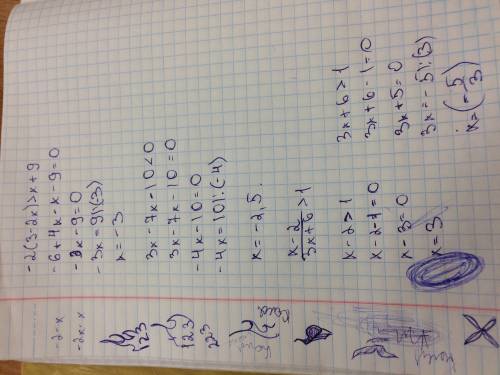 -2(3-2x)>x+9
-6+4x-x-9=0
-3x-9=0
-3x=9|:(3)
x=-3
3x-7x-10<0
3x-7x-10=0
-4x-10=0
-4x=10|:(-4)
x=-2,5.
x-2
3x+6 >1
x-2>1
x-2-1=0
x-3=0
x=3
3x+6>1
3x+6-1=0
3x+5=0
3x=-5|:(3)
x=(-5/3)
-2-x
123
123
223